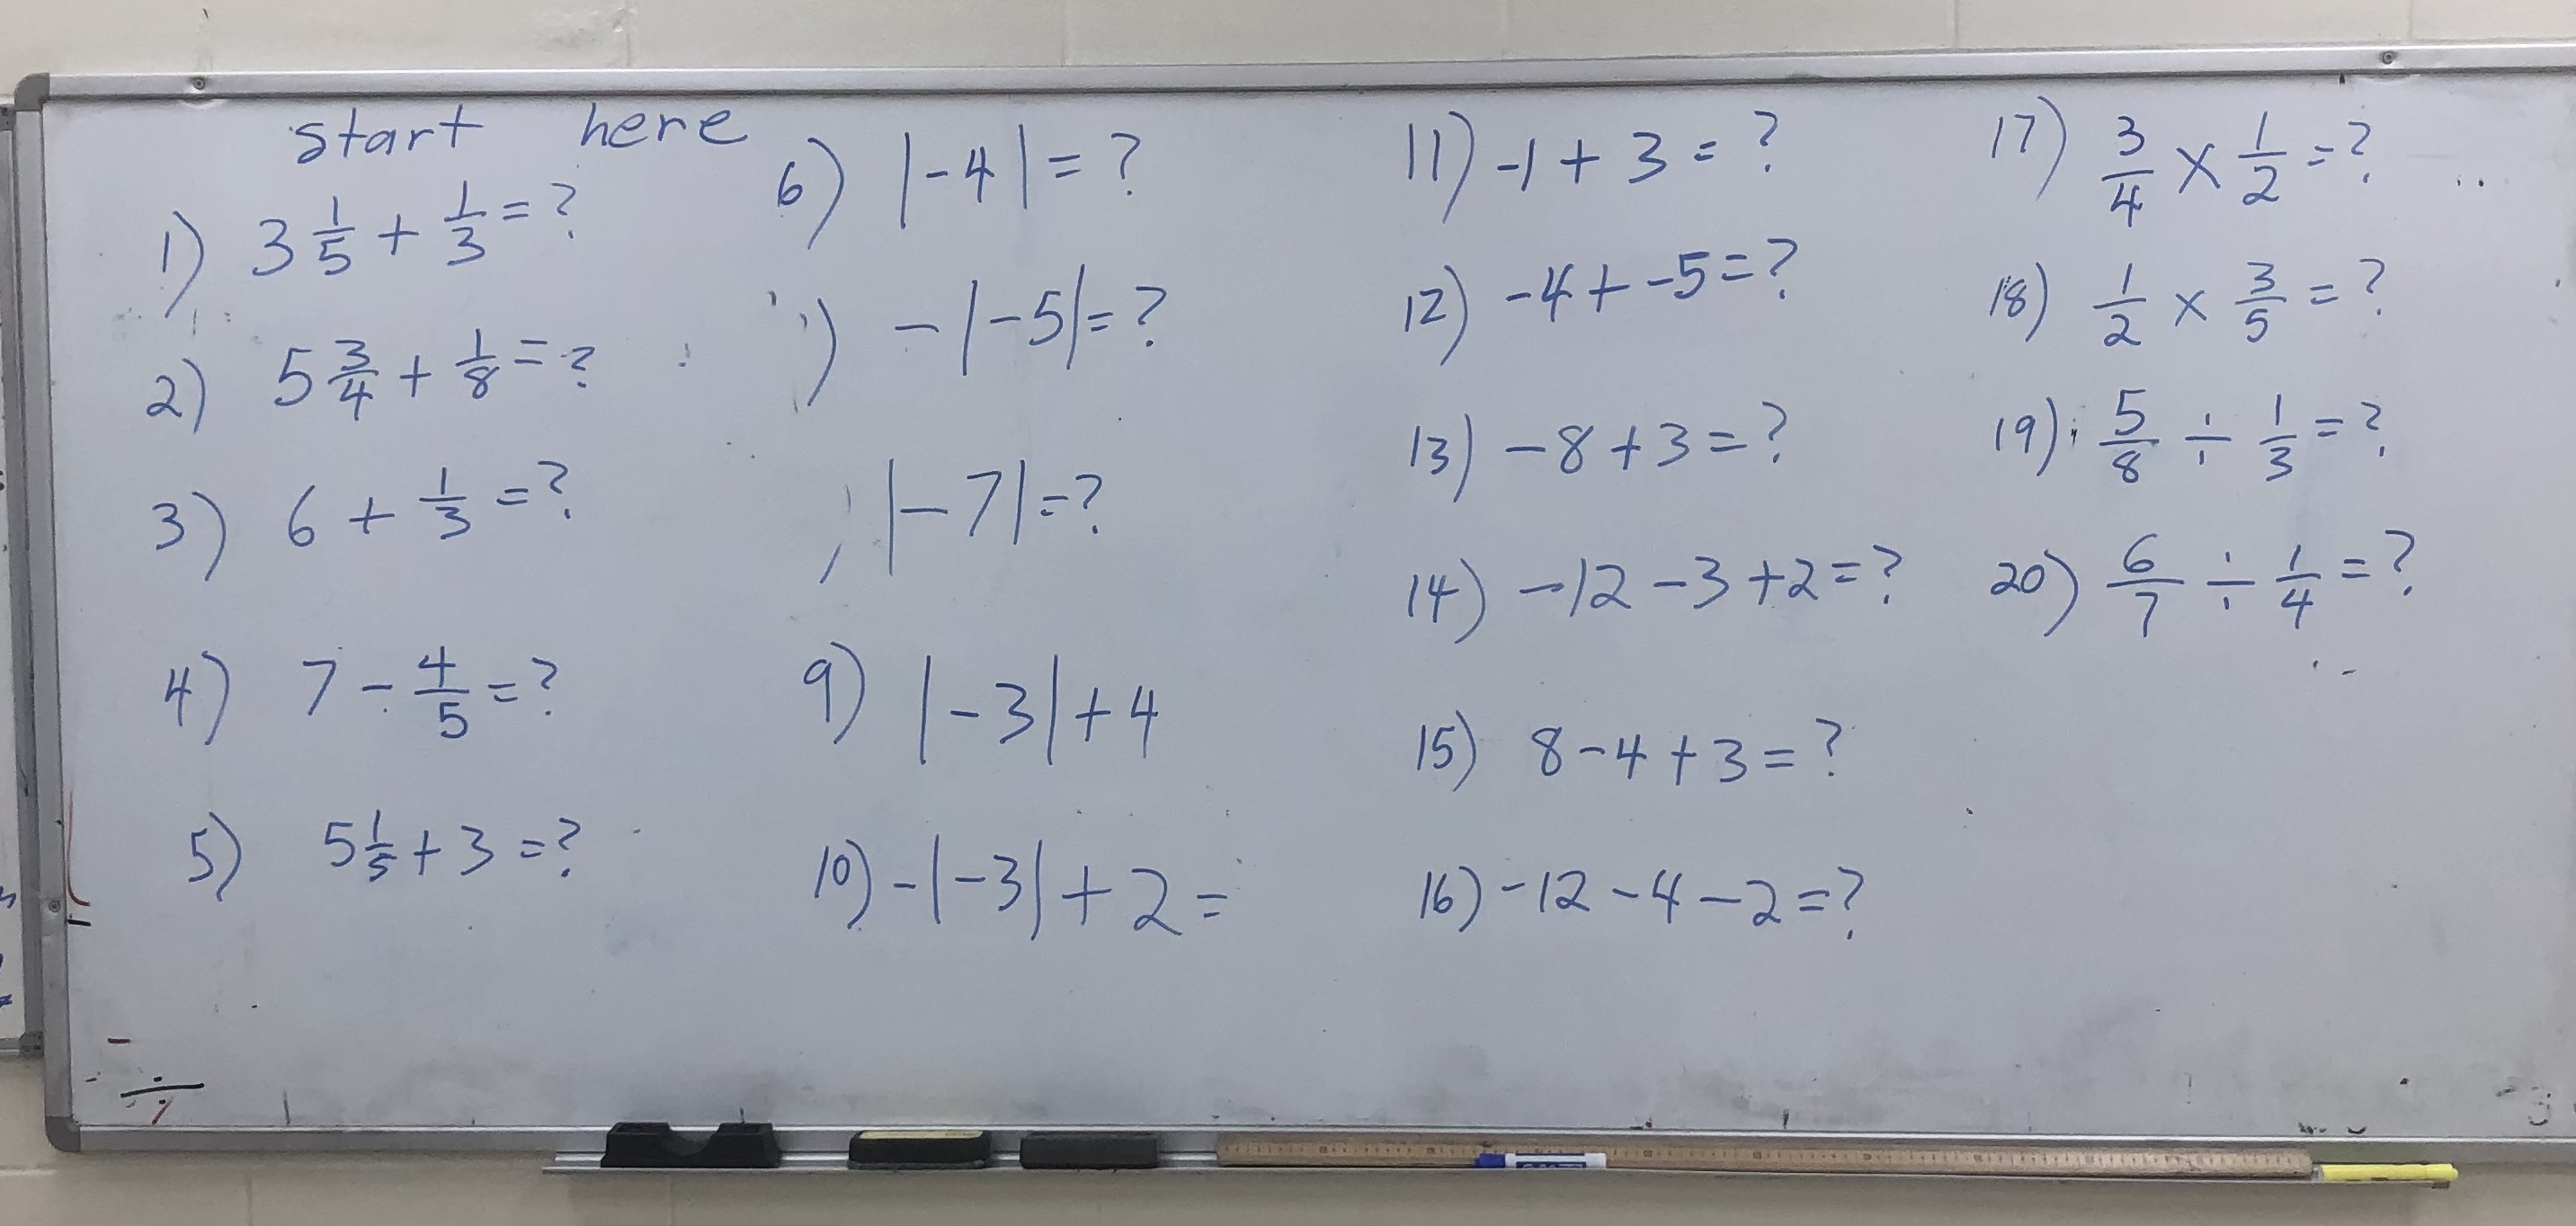 start here
1) 3 1/5 + 1/3 = ?
2) 5 3/4 + 1/8 = ?
3) 6 + 1/3 = ?
4) 7 - 4/5 = ?
5) 5 1/5 + 3 = ?
6) |-4| = ?
) -|-5| = ?
|-7| = ?
9) |-3| + 4
10) -|-3| + 2 =
11) -1 + 3 = ?
12) -4 + -5 = ?
13) -8 + 3 = ?
14) -12 - 3 + 2 = ?
15) 8 - 4 + 3 = ?
16) -12 - 4 - 2 = ?
17) 3/4 × 1/2 = ?
18) 1/2 × 3/5 = ?
19) 5/8 ÷ 1/3 = ?
20) 6/7 ÷ 1/4 = ?